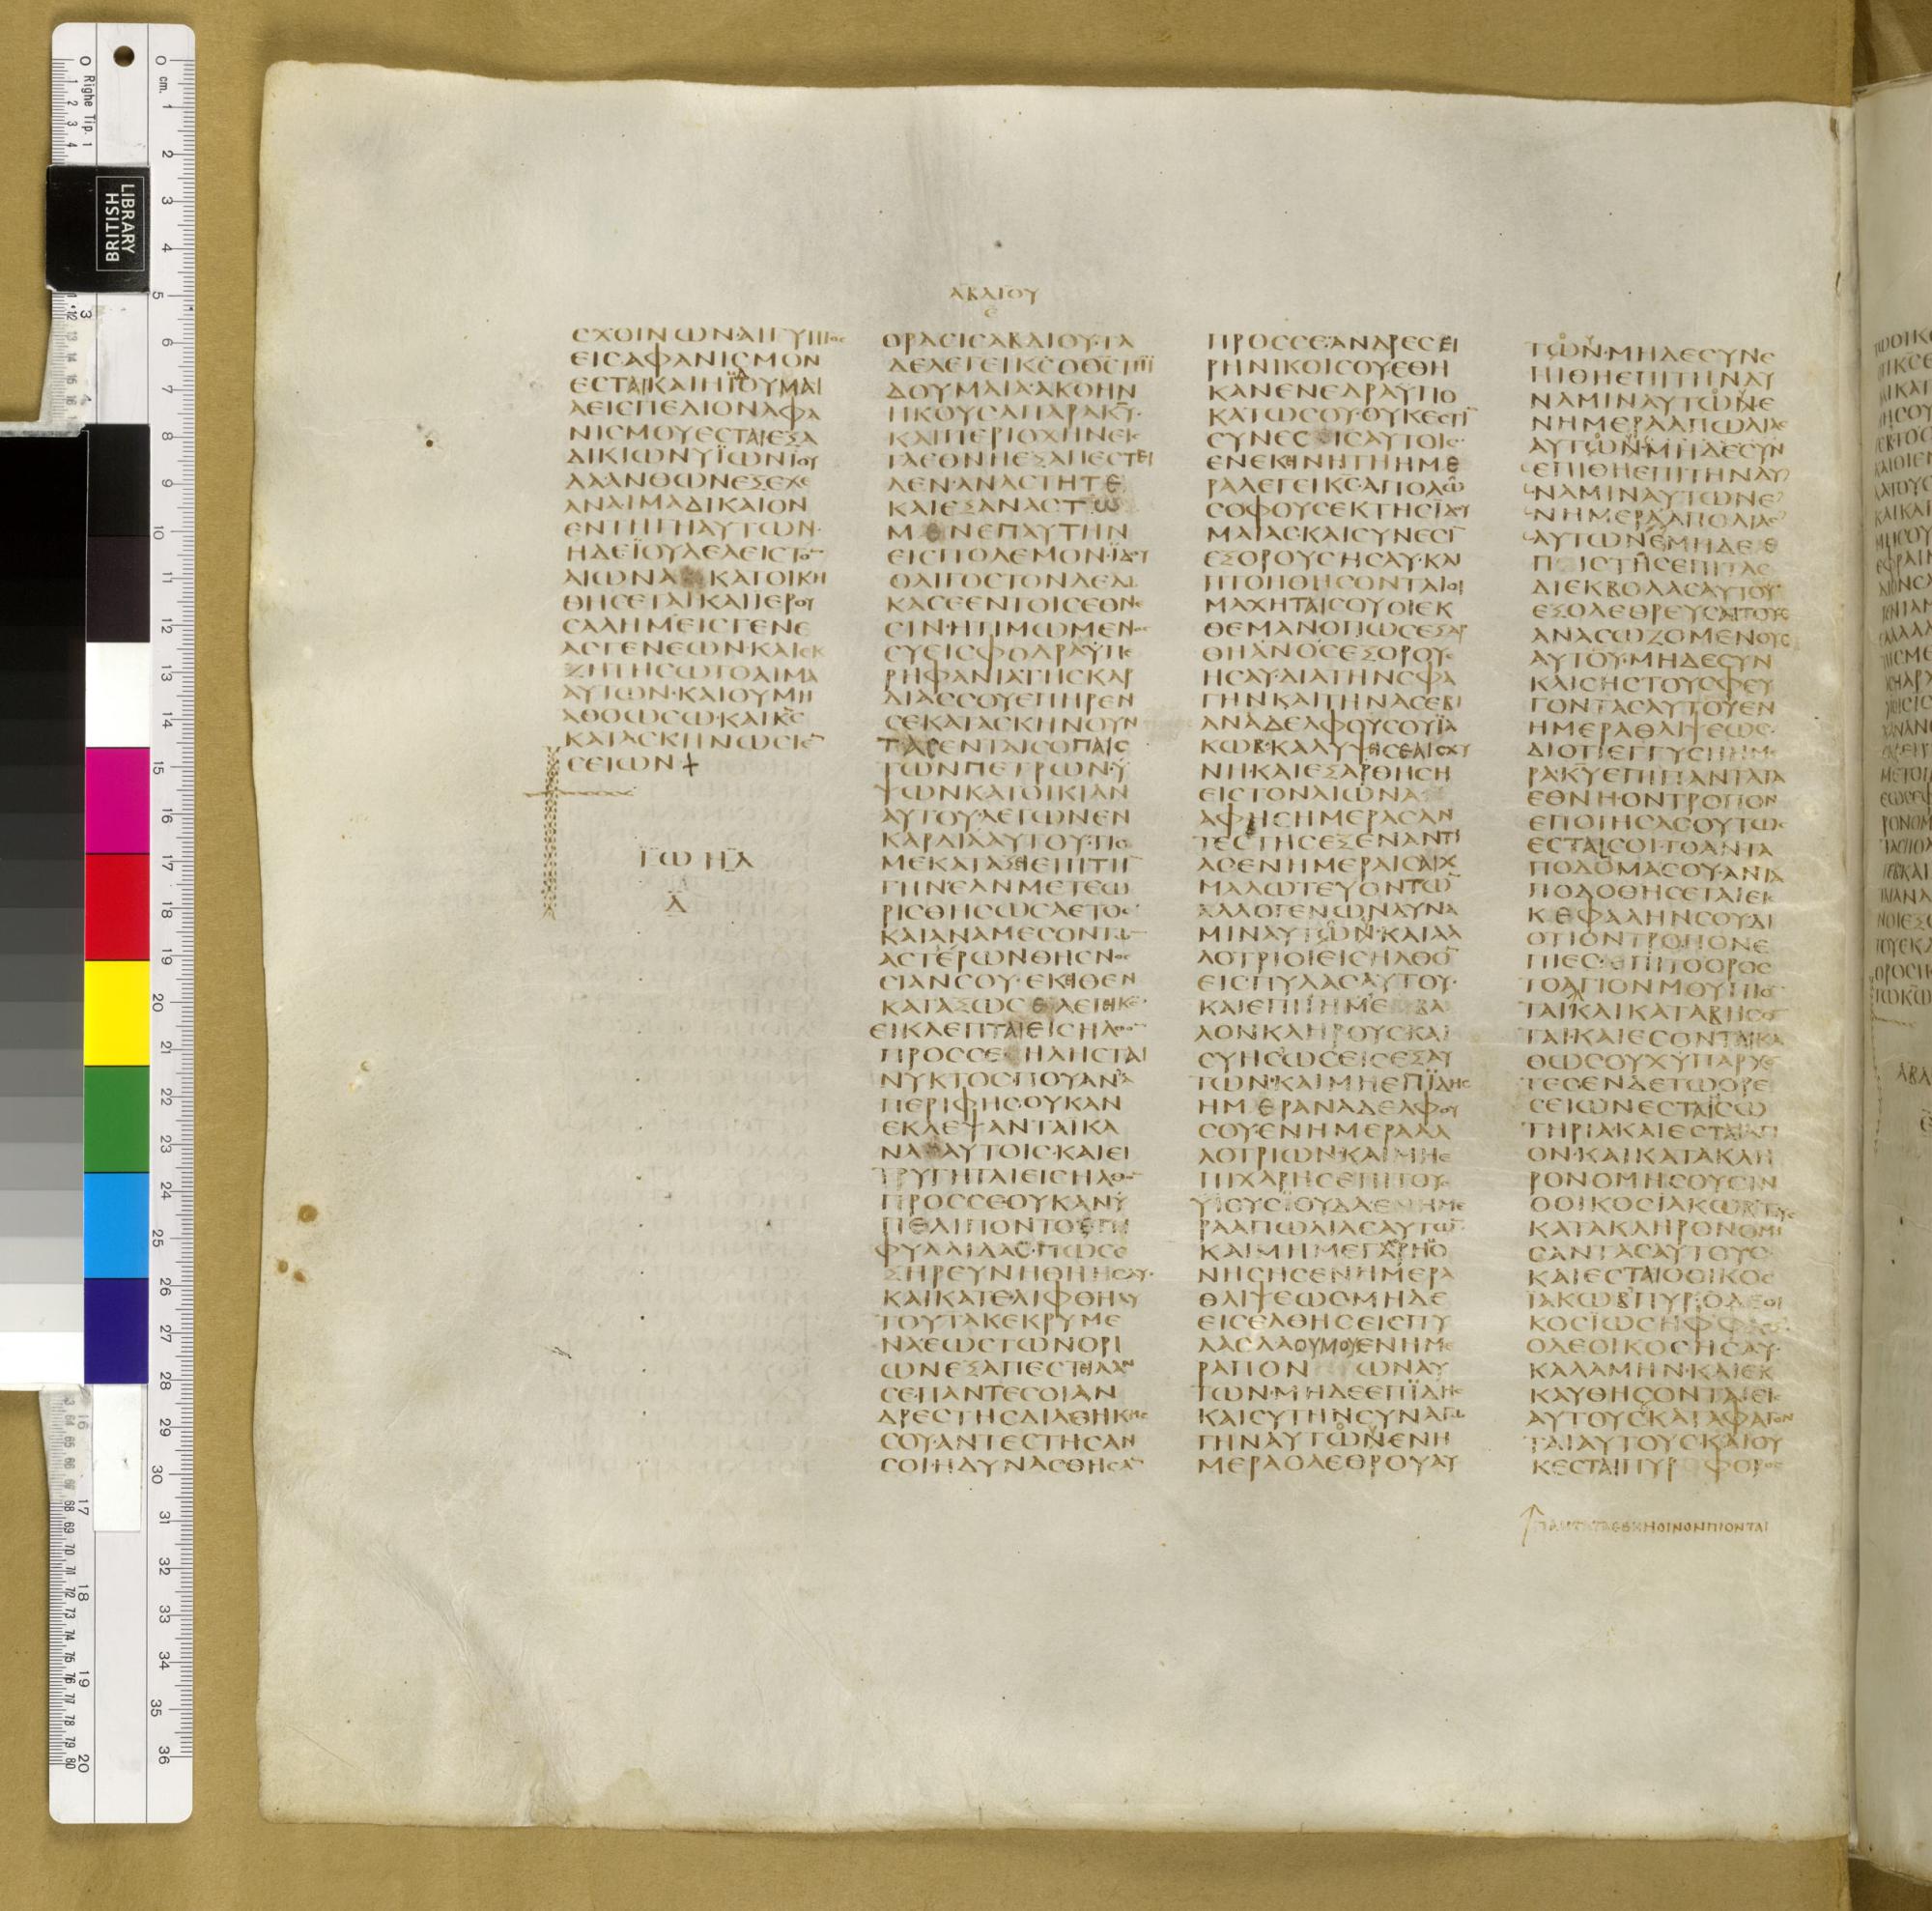 ΑΒΔΙΟΥ
ΣΧΟΙΝΩΝ·ΑΙΓΥΠΤΟϹ
ΕΙϹΑΦΑΝΙϹΜΟΝ
ΕϹΤΑΙΚΑΙΗΪΔΟΥΜΑΙ
ΔΕΙϹΠΕΔΙΟΝΑΦΑ
ΝΙϹΜΟΥΕϹΤΑΙΕΞΑ
ΔΙΚΙΩΝΥΪΩΝΪΟΥ
ΔΑΑΝΘΩΝΕΞΕΧΕ
ΑΝΑΙΜΑΔΙΚΑΙΟΝ
ΕΝΤΗΓΗΑΥΤΩΝ·
ΗΔΕΪΟΥΔΕΑΕΙϹΤΟΝ
ΑΙΩΝΑ ΚΑΤΟΙΚΗ
ΘΗϹΕΤΑΙΚΑΙΪΕΡΟΥ
ϹΑΛΗΜΕΙϹΓΕΝΕ
ΑϹΓΕΝΕΩΝ·ΚΑΙΕΚ
ΖΗΤΗϹΩΤΟΑΙΜΑ
ΑΥΤΩΝ·ΚΑΙΟΥΜΗ
ΑΘΟΩϹΩ·ΚΑΙΚϹ
ΚΑΤΑϹΚΗΝΩϹΙΕ̅
ϹΕΙΩΝ
ΪΩΗΛ
Δ
ΟΡΑϹΙϹΑΒΔΙΟΥ·ΤΑ
ΔΕΛΕΓΕΙΚϹΟΘϹΤΗΪ
ΔΟΥΜΑΙΑ·ΑΚΟΗΝ
ΗΚΟΥϹΑΠΑΡΑΚΥ·
ΚΑΙΠΕΡΙΟΧΗΝΕΙϹ
ΤΑΕΘΝΗΕΞΑΠΕϹΤΕΙ
ΛΕΝ·ΑΝΑϹΤΗΤΕ
ΚΑΙΕΞΑΝΑϹΤΩ
ΜΕΝΕΠΑΥΤΗΝ
ΕΙϹΠΟΛΕΜΟΝ·ΪΔΟΥ
ΟΛΙΓΟϹΤΟΝΔΕΔΩ
ΚΑϹΕΕΝΤΟΙϹΕΘΝΕ
ϹΙΝ·ΗΤΙΜΩΜΕΝΟϹ
ϹΥΕΙϹΦΟΔΡΑΫΠΕ
ΡΗΦΑΝΙΑΤΗϹΚΑΡ
ΔΙΑϹϹΟΥΕΠΗΡΕΝ
ϹΕΚΑΤΑϹΚΗΝΟΥΝ
ΤΑϹΕΝΤΑΙϹΟΠΑΙϹ
ΤΩΝΠΕΤΡΩΝ·Ϋ
ΨΩΝΚΑΤΟΙΚΙΑΝ
ΑΥΤΟΥ·ΛΕΓΩΝΕΝ
ΚΑΡΔΙΑΑΥΤΟΥ·ΤΙϹ
ΜΕΚΑΤΑΞΕΙΕΠΙΤΗ̅
ΓΗΝ·ΕΑΝΜΕΤΕΩ
ΡΙϹΘΗϹΩϹΑΕΤΟϹ
ΚΑΙΑΝΑΜΕϹΟΝΤΩ̅
ΑϹΤΕΡΩΝΘΗϹΝΟϹ
ϹΙΑΝϹΟΥ·ΕΚΕΙΘΕΝ
ΚΑΤΑΞΩϹΕΛΕΓΕΙΚϹ·
ΕΙΚΛΕΠΤΑΙΕΙϹΗΛΘΟ̅
ΠΡΟϹϹΕ ΗΛΗϹΤΑΙ
ΝΥΚΤΟϹ·ΠΟΥΑΝΑ
ΠΕΡΙΦΗϹ·ΟΥΚΑΝ
ΕΚΛΕΨΑΝΤΑΪΚΑ
ΝΑ ΑΥΤΟΙϹ·ΚΑΙΕΙ
ΤΡΥΓΗΤΑΙΕΙϹΗΛΘΟ̅
ΠΡΟϹϹΕΟΥΚΑΝΫ
ΠΕΛΙΠΟΝΤΟΕΠΙ
ΦΥΛΛΙΔΑϹ·ΠΩϹΕ
ΞΗΡΕΥΝΗΘΗΗϹΑΥ·
ΚΑΙΚΑΤΕΛΙΦΘΗΑΥ
ΤΟΥΤΑΚΕΚΡΥΜΕ
ΝΑ·ΕΩϹΤΩΝΟΡΙ
ΩΝΕΞΑΠΕϹΤΕΙΛΑΝ
ϹΕ·ΠΑΝΤΕϹΟΙΑΝ
ΔΡΕϹΤΗϹΔΙΑΘΗΚΗϹ
ϹΟΥ·ΑΝΤΕϹΤΗϹΑΝ
ϹΟΙ·ΗΔΥΝΑϹΘΗϹΑ̅
ΠΡΟϹϹΕ·ΑΝΔΡΕϹΕΙ
ΡΗΝΙΚΟΙϹΟΥ·ΕΘΗ
ΚΑΝΕΝΕΔΡΑΫΠΟ
ΚΑΤΩϹΟΥ·ΟΥΚΕϹΤΙ̅
ϹΥΝΕϹΙϹΑΥΤΟΙϹ·
ΕΝΕΚΕΙΝΗΤΗΗΜΕ
ΡΑΛΕΓΕΙΚϹ·ΑΠΟΛΩ̅
ϹΟΦΟΥϹΕΚΤΗϹΪΔΟΥ
ΜΑΙΑϹ·ΚΑΙϹΥΝΕϹΙ̅
ΕΞΟΡΟΥϹΗϹΑΥ·ΚΑΙ
ΠΤΟΗΘΗϹΟΝΤΑΙΟΙ
ΜΑΧΗΤΑΙϹΟΥΟΙΕΚ
ΘΕΜΑΝΟΠΩϹΕΞΑΡ
ΘΗΑΝΟϹΕΞΟΡΟΥϹ
ΗϹΑΥ·ΔΙΑΤΗΝϹΦΑ
ΓΗΝΚΑΙΤΗΝΑϹΕΒΙ
ΑΝΑΔΕΛΦΟΥϹΟΥΪΑ
ΚΩΒ·ΚΑΛΥΨΕΙϹΕΑΙϹΧΥ
ΝΗ·ΚΑΙΕΞΑΡΘΗϹΗ
ΕΙϹΤΟΝΑΙΩΝΑ
ΑΦΗϹΗΜΕΡΑϹΑΝ
ΤΕϹΤΗϹΕΞΕΝΑΝΤΙ
ΑϹΕΝΗΜΕΡΑΙϹΑΙΧ
ΜΑΛΩΤΕΥΟΝΤΩ̅
ΑΛΛΟΓΕΝΩΝΔΥΝΑ
ΜΙΝΑΥΤΩΝ·ΚΑΙΑΛ
ΛΟΤΡΙΟΙΕΙϹΗΛΘΟ̅
ΕΙϹΠΥΛΑϹΑΥΤΟΥ·
ΚΑΙΕΠΙΪΗΜΕΒΑ
ΛΟΝΚΛΗΡΟΥϹΚΑΙ
ϹΥΗϹΩϹΕΙϹΕΞΑΥ
ΤΩΝ·ΚΑΙΜΗΕΠΪΔΗϹ
ΗΜΕΡΑΝΑΔΕΛΦΟΥ
ϹΟΥ·ΕΝΗΜΕΡΑΑΛ
ΛΟΤΡΙΩΝ·ΚΑΙΜΗΕ
ΠΙΧΑΡΗϹΕΠΙΤΟΥϹ
ΥΪΟΥϹΪΟΥΔΑΕΝΗΜΕ
ΡΑΑΠΩΛΙΑϹΑΥΤΩ̅·
ΚΑΙΜΗΜΕΓΑΡΗΟ
ΝΗϹΗϹΕΝΗΜΕΡΑ
ΘΛΙΨΕΩϹΜΗΔΕ
ΕΙϹΕΛΘΗϹΕΙϹΠΥ
ΛΑϹΛΑΟΥΜΟΥΕΝΗΜΕ
ΡΑΠΟΝΩΝΑΥ
ΤΩΝ·ΜΗΔΕΕΠΪΔΗϹ
ΚΑΙϹΥΤΗΝϹΥΝΑΓΩ
ΓΗΝΑΥΤΩΝΕΝΗ
ΜΕΡΑΟΛΕΘΡΟΥΑΥ
ΤΩΝ·ΜΗΔΕϹΥΝΕ
ΠΙΘΗΕΠΙΤΗΝΔΥ
ΝΑΜΙΝΑΥΤΩΝΕ
ΝΗΜΕΡΑΑΠΩΛΙΑϹ
ΑΥΤΩΝ·ΜΗΔΕϹΥΝ
ΕΠΙΘΗΕΠΙΤΗΝΔΥ
ΝΑΜΙΝΑΥΤΩΝΕ
ΝΗΜΕΡΑΑΠΟΛΙΑϹ
ΑΥΤΩΝ·ΜΗΔΕΕ
ΠΙϹΤΗϹΕΠΙΤΑϹ
ΔΙΕΚΒΟΛΑϹΑΥΤΟΥ
ΕΞΟΛΕΘΡΕΥϹΑΙΤΟΥϹ
ΑΝΑϹΩΖΟΜΕΝΟΥϹ
ΑΥΤΟΥ·ΜΗΔΕϹΥΝ
ΚΛΙϹΗϹΤΟΥϹΦΕΥ
ΓΟΝΤΑϹΑΥΤΟΥΕΝ
ΗΜΕΡΑΘΛΙΨΕΩϹ·
ΔΙΟΤΙΕΓΓΥϹΗΗΜΕ
ΡΑΚΥΕΠΙΠΑΝΤΑΤΑ
ΕΘΝΗ·ΟΝΤΡΟΠΟΝ
ΕΠΟΙΗϹΑϹΟΥΤΩϹ
ΕϹΤΑΙϹΟΙ·ΤΟΑΝΤΑ
ΠΟΔΟΜΑϹΟΥ·ΑΝΤΑ
ΠΟΔΟΘΗϹΕΤΑΙΕΙϹ
ΚΕΦΑΛΗΝϹΟΥΔΙ
ΟΤΙΟΝΤΡΟΠΟΝΕ
ΠΙΕϹΕΠΙΤΟΟΡΟϹ
ΤΟΑΓΙΟΝΜΟΥΠΙΟ̅
ΤΑΙΚΑΙΚΑΤΑΒΗϹΟ̅
ΤΑΙ·ΚΑΙΕϹΟΝΤΑΙΚΑ
ΘΩϹΟΥΧΫΠΑΡΧΟ̅
ΤΕϹΕΝΔΕΤΩΟΡΕΙ
ϹΕΙΩΝΕϹΤΑΙϹΩ
ΤΗΡΙΑ·ΚΑΙΕϹΤΑΙΑΓΙ
ΟΝ·ΚΑΙΚΑΤΑΚΛΗ
ΡΟΝΟΜΗϹΟΥϹΙΝ
ΟΟΙΚΟϹΪΑΚΩΒΤΟΥϹ
ΚΑΤΑΚΛΗΡΟΝΟΜΗ
ϹΑΝΤΑϹΑΥΤΟΥϹ·
ΚΑΙΕϹΤΑΙΟΟΙΚΟϹ
ΪΑΚΩΒΠΥΡ·ΟΔΕΟΙ
ΚΟϹΪΩϹΗΦΦΛΟΞ
ΟΔΕΟΙΚΟϹΗϹΑΥ·
ΚΑΛΑΜΗΝ·ΚΑΙΕΚ
ΚΑΥΘΗϹΟΝΤΑΙΕΙϹ
ΑΥΤΟΥϹΚΑΤΑΦΑΓΟΝ
ΤΑΙΑΥΤΟΥϹΚΑΙΟΥ
ΚΕϹΤΑΙΠΥΡΦΟΡΟϹ
ΠΑΝΤΑΤΑΕΘΝΗΟΙΝΟΝΠΙΟΝΤΑΙ
LIBRARY
BRITISH
Righe Tip. 1
cm.